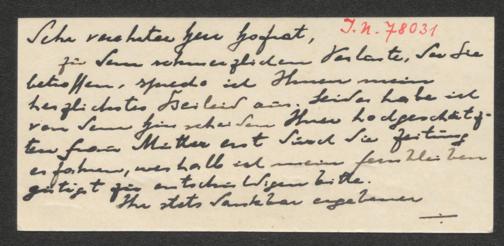 J. N. 78031
Sehr verehrter Herr Hofrat,
zu dem schmerzlichen Verluste, der Sie
betroffen, spreche ich Ihnen mein
herzlichstes Beileid aus. Leider habe ich
von dem Hinscheiden Ihrer hochgeschätz-
ten Frau Mutter erst durch die Zeitung
erfahren, weshalb ich mein fernbleiben
gütigst zu entschuldigen bitte.
Ihr stets dankbar ergebener